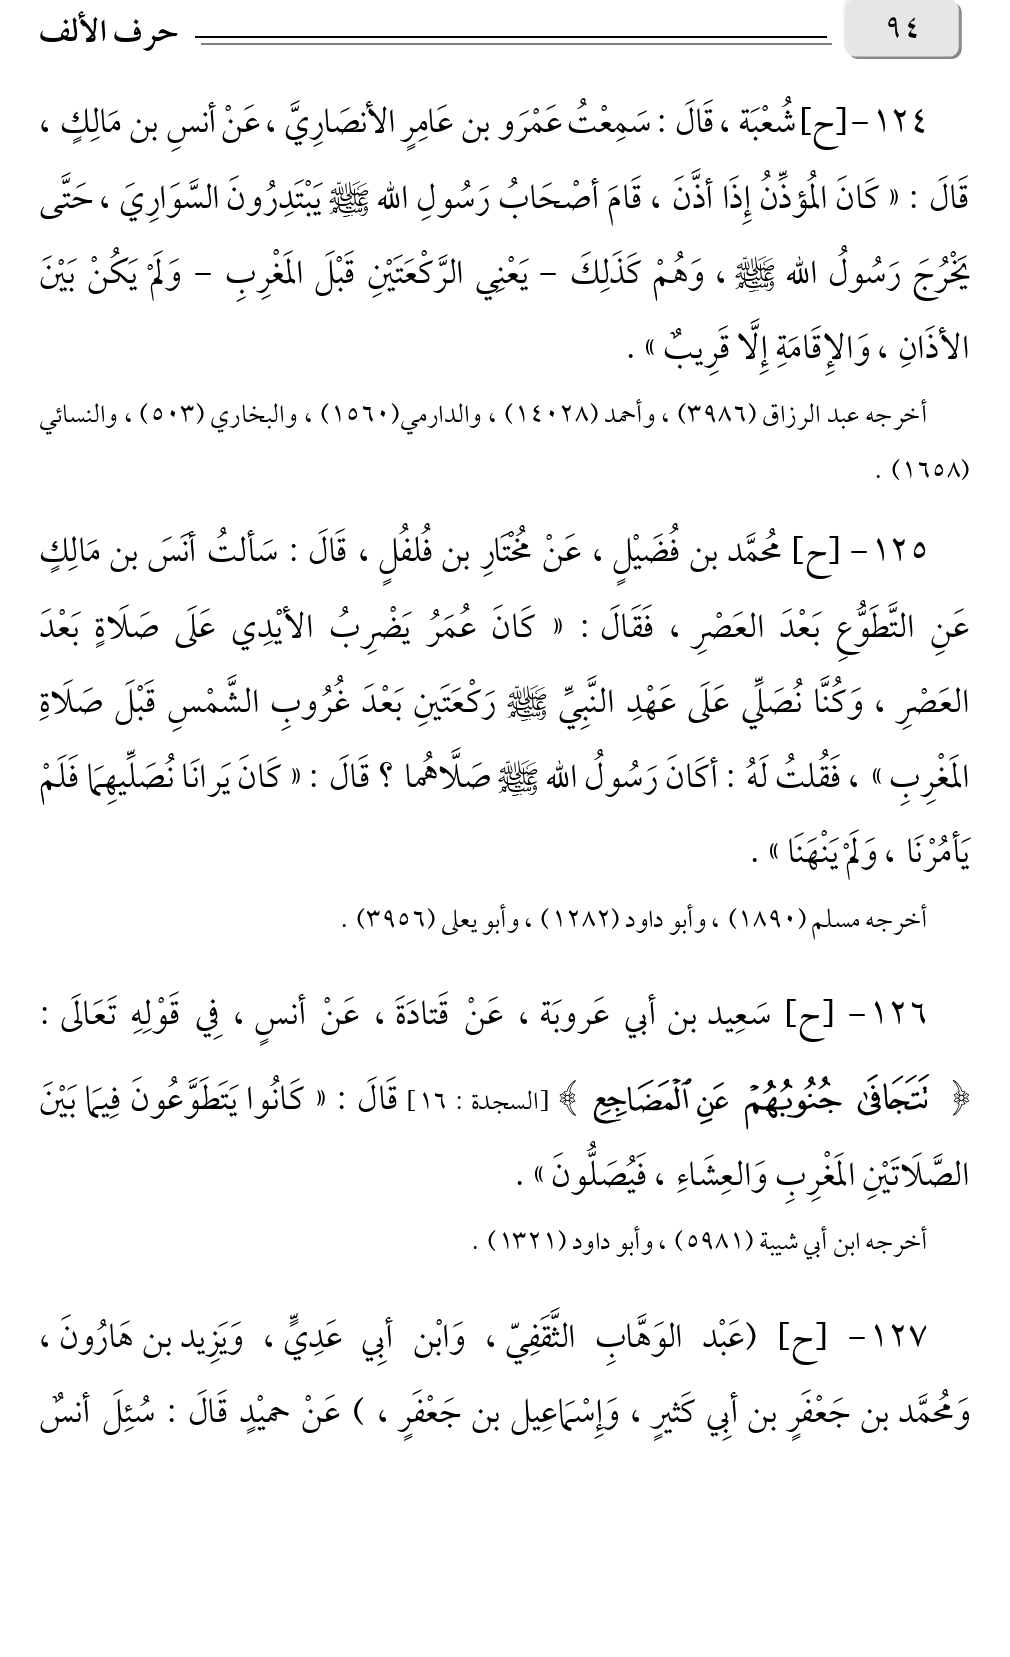 ٩٤ حرف الألف
١٢٤ – [ح] شُعْبَة ، قَالَ : سَمِعْتُ عَمْرَو بن عَامِرٍ الأنصَارِيَّ ، عَنْ أنسِ بن مَالِكٍ ،
قَالَ : « كَانَ المُؤذِّنُ إِذَا أذَّنَ ، قَامَ أصْحَابُ رَسُولِ الله ﷺ يَبْتَدِرُونَ السَّوَارِيَ ، حَتَّى
يَخْرُجَ رَسُولُ الله ﷺ ، وَهُمْ كَذَلِكَ – يَعْنِي الرَّكْعَتَيْنِ قَبْلَ المَغْرِبِ – وَلَمْ يَكُنْ بَيْنَ
الأذَانِ ، وَالإِقَامَةِ إِلَّا قَرِيبٌ » .
أخرجه عبد الرزاق (٣٩٨٦) ، وأحمد (١٤٠٢٨) ، والدارمي (١٥٦٠) ، والبخاري (٥٠٣) ، والنسائي
(١٦٥٨) .
١٢٥ – [ح] مُحمَّد بن فُضَيْلٍ ، عَنْ مُخْتَارِ بن فُلفُلٍ ، قَالَ : سَألتُ أنَسَ بن مَالِكٍ
عَنِ التَّطَوُّعِ بَعْدَ العَصْرِ ، فَقَالَ : « كَانَ عُمَرُ يَضْرِبُ الأيْدِي عَلَى صَلَاةٍ بَعْدَ
العَصْرِ ، وَكُنَّا نُصَلِّي عَلَى عَهْدِ النَّبِيِّ ﷺ رَكْعَتَينِ بَعْدَ غُرُوبِ الشَّمْسِ قَبْلَ صَلَاةِ
المَغْرِبِ » ، فَقُلتُ لَهُ : أكَانَ رَسُولُ الله ﷺ صَلَّاهُما ؟ قَالَ : « كَانَ يَرانَا نُصَلِّيهِمَا فَلَمْ
يَأمُرْنَا ، وَلَمْ يَنْهَنَا » .
أخرجه مسلم (١٨٩٠) ، وأبو داود (١٢٨٢) ، وأبو يعلى (٣٩٥٦) .
١٢٦ – [ح] سَعِيد بن أبي عَروبَة ، عَنْ قَتادَةَ ، عَنْ أنسٍ ، فِي قَوْلِهِ تَعَالَى :
﴿ تَتَجَافَىٰ جُنُوبُهُمۡ عَنِ ٱلۡمَضَاجِعِ ﴾ [السجدة : ١٦] قَالَ : « كَانُوا يَتَطَوَّعُونَ فِيمَا بَيْنَ
الصَّلَاتَيْنِ المَغْرِبِ وَالعِشَاءِ ، فَيُصَلُّونَ » .
أخرجه ابن أبي شيبة (٥٩٨١) ، وأبو داود (١٣٢١) .
١٢٧ – [ح] (عَبْد الوَهَّابِ الثَّقَفِيّ ، وَابْن أبِي عَدِيٍّ ، وَيَزِيد بن هَارُونَ ،
وَمُحمَّد بن جَعْفَرٍ بن أبِي كَثيرٍ ، وَإِسْمَاعِيل بن جَعْفَرٍ ، ) عَنْ حميْدٍ قَالَ : سُئِلَ أنسٌ